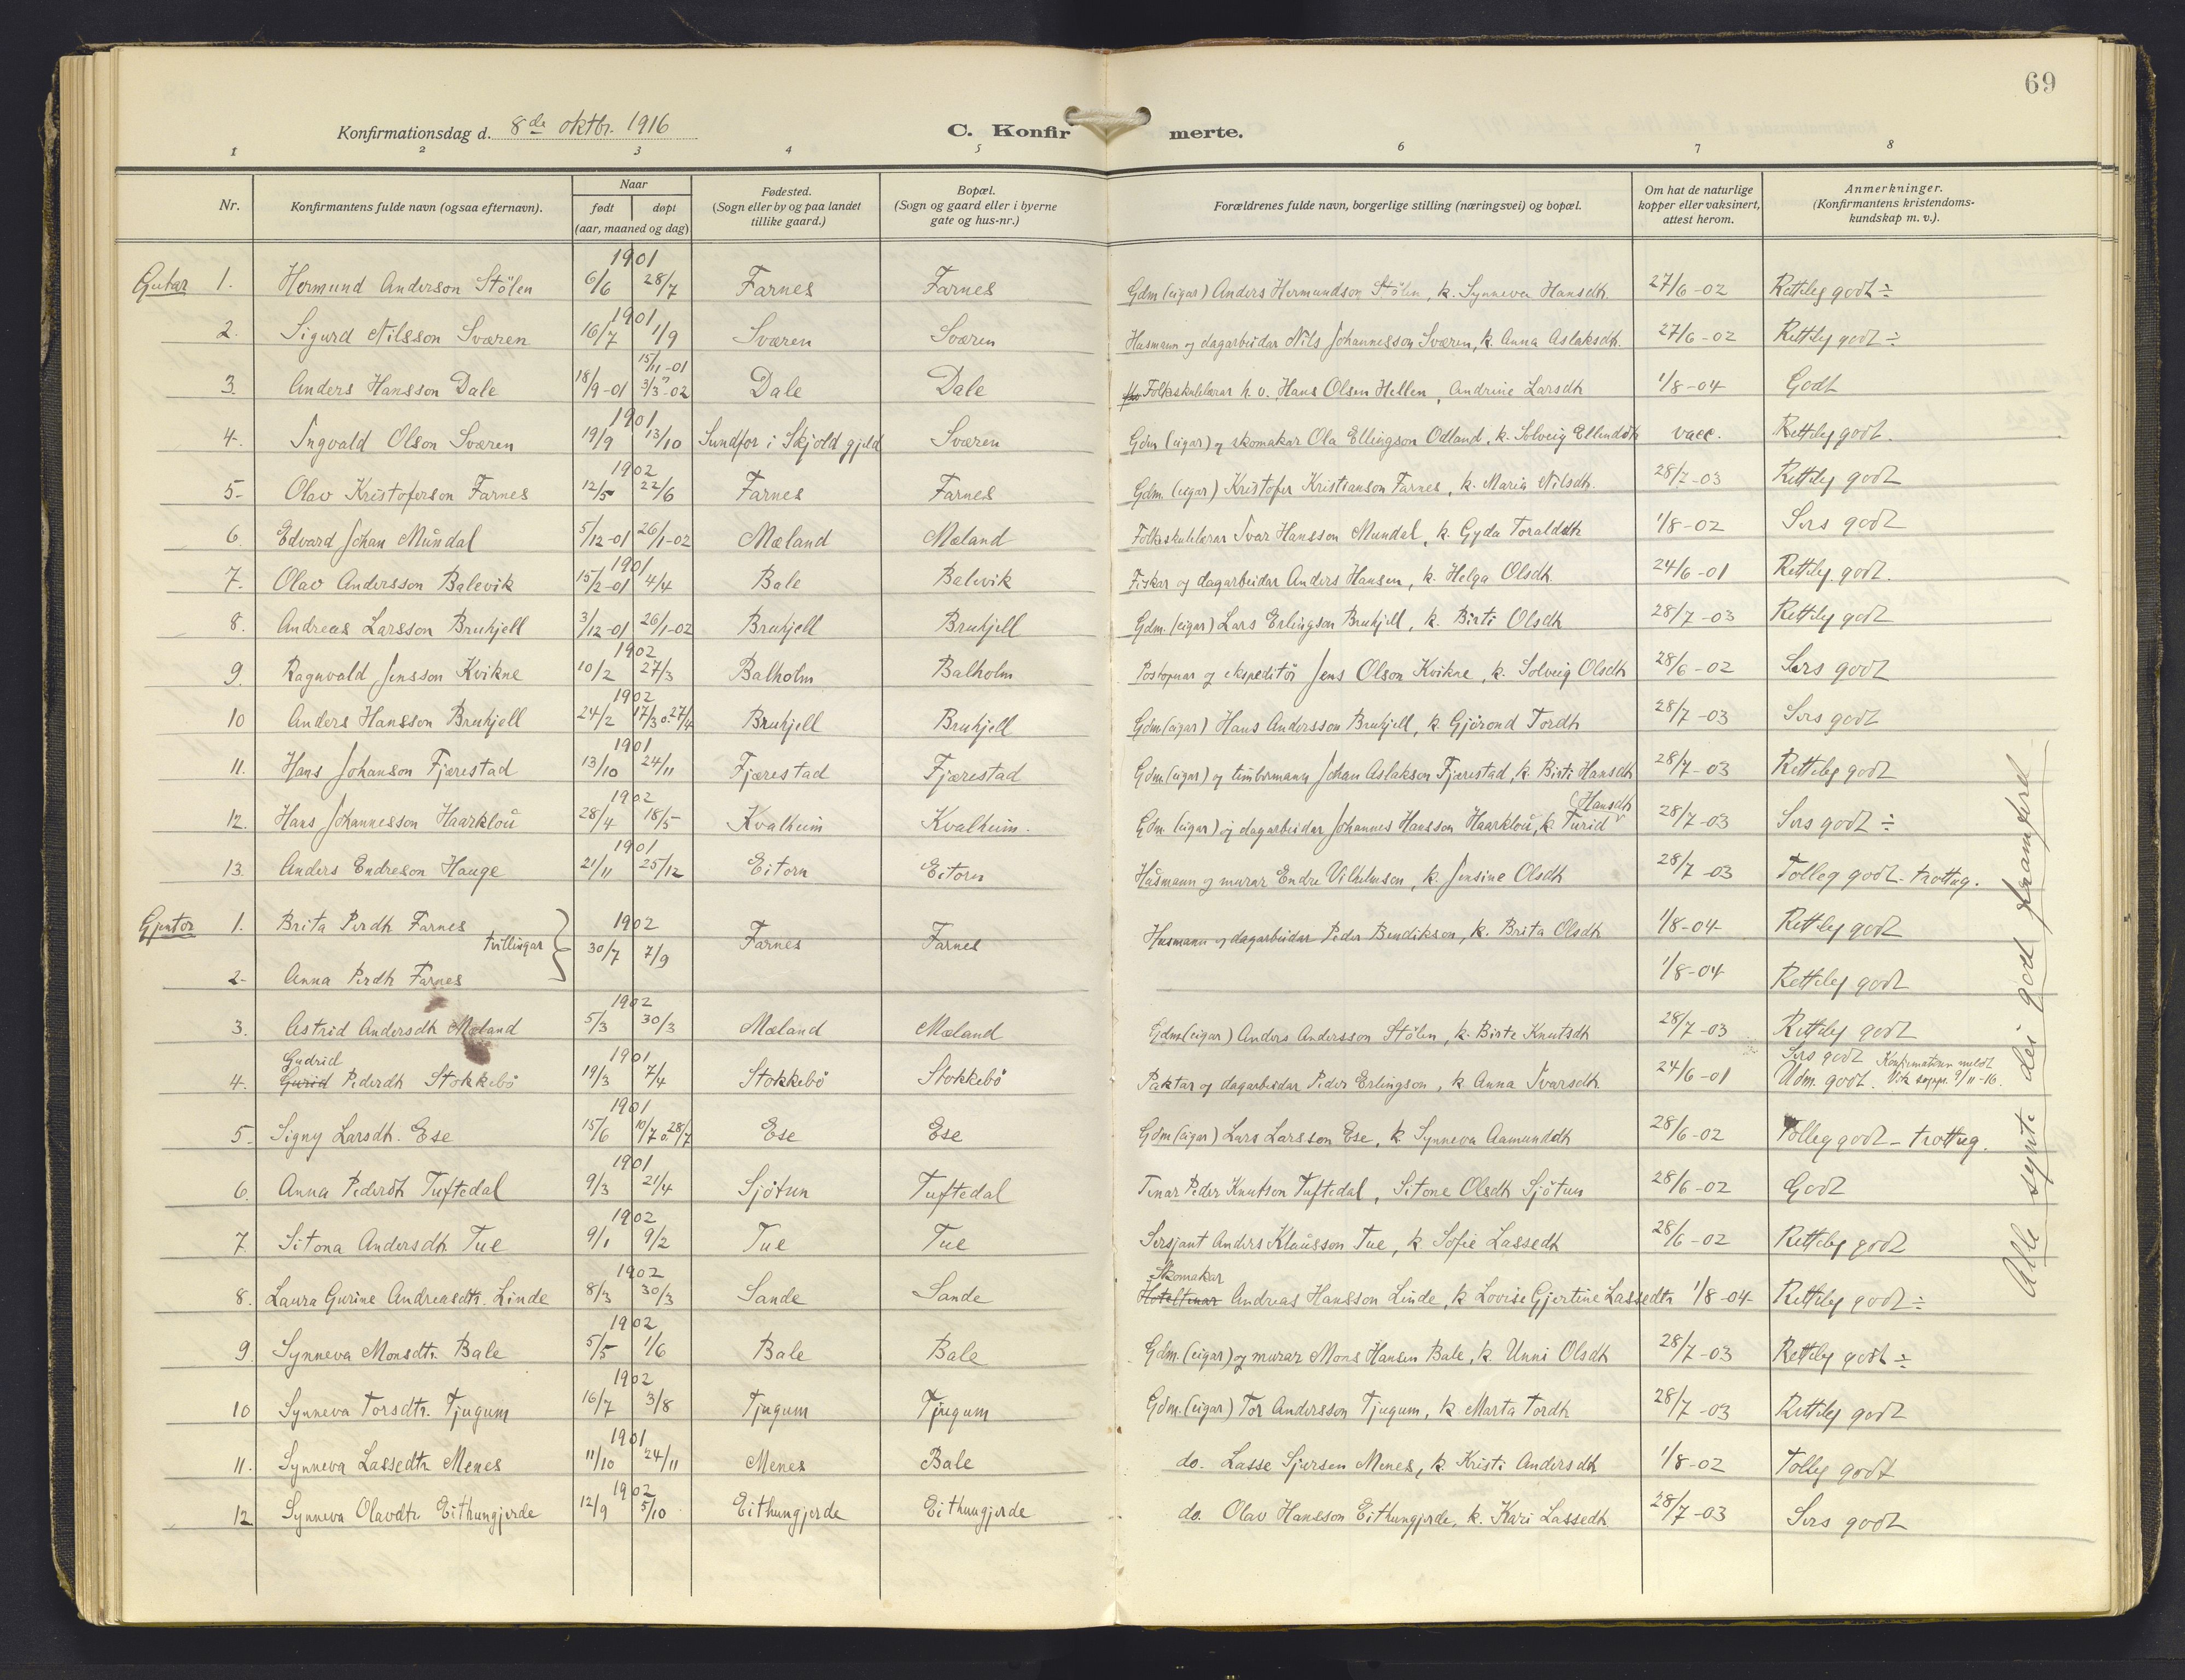 69
Konfirmationsdag d. 8de oktbr. 1916
C. Konfirmerte.
1 2 3 4 5 6 7 8
Nr.
Konfirmantens fulde navn (ogsaa efternavn).
Naar
født døpt
(aar, maaned og dag)
Fødested.
(Sogn eller by og paa landet
tillike gaard.)
Bopæl.
(Sogn og gaard eller i byerne
gate og hus-nr.)
Forældrenes fulde navn, borgerlige stilling (næringsvei) og bopæl.
Om hat de naturlige
kopper eller vaksinert,
attest herom.
Anmerkninger.
(Konfirmantens kristendoms-
kundskap m. v.).
1901
Gutar 1. Hermund Anderson Stölen 6/6 28/7 Farnes Farnes Gdm (eigar) Anders Hermundson Stölen, k. Synneva Hansdh. 27/6-02 Retteleg godt ÷
1901
2. Sigurd Nilsson Sværen 16/7 1/9 Sværen Sværen Husmann og dagarbeidar Nils Johannesson Sværen, k. Anna Aslaksdh. 27/6-02 Retteleg godt ÷
15/11-01
3. Anders Hansson Dale 18/9-01 3/3-02 Dale Dale Folkeskulelærar h. v. Hans Olsen Hellen, Andrine Larsdh 1/8-04 Godt
1901
4. Ingvald Olson Sværen 19/9 13/10 Sundfor i Skjold gjeld Sværen Gdm (eigar) og skomakar Ola Ellingson Odland, k. Solveig Ellendsdh vacc. Retteleg godt.
1902
5. Olav Kristoferson Farnes 12/5 22/6 Farnes Farnes Gdm. (eigar) Kristofer Kristianson Farnes, k. Maria Nilsdh. 28/7-03 Retteleg godt
6. Edvard Johan Mundal 5/12-01 26/1-02 Mæland Mæland Folkeskulelærar Ivar Hansson Mundal, k. Gyda Toraldsdh 1/8-02 Sers godt
1901
7. Olav Andersson Balevik 15/2-01 4/4 Bale Balevik Fiskar og dagarbeidar Anders Hansen, k. Helga Olsdh. 24/6-01 Retteleg godt.
8. Andreas Larsson Bruhjell 3/12-01 26/1-02 Bruhjell Bruhjell Gdm. (eigar) Lars Erlingson Bruhjell, k. Birti Olsdh 28/7-03 Retteleg godt
1902
9. Ragnvald Jensson Kvikne 10/2 27/3 Balholm Balholm Postopnar og ekspeditör Jens Olson Kvikne, k. Solveig Olsdh 28/6-02 Sers godt
1902
10 Anders Hansson Bruhjell 24/2 17/3 o. 27/4 Bruhjell Bruhjell Gdm (eigar) Hans Andersson Bruhjell, k Gjörond Tordh 28/7-03 Sers godt
1901
11. Hans Johanson Fjærestad 13/10 24/11 Fjærestad Fjærestad Gdm (eigar) og timbermann Johan Aslakson Fjærestad, k. Birti Hansdh 28/7-03 Retteleg godt
1902 Hansdh
12. Hans Johannesson Haarklou 28/4 18/5 Kvalheim Kvalheim. Gdm (eigar) og dagarbeidar Johannes Hansson Haarklou, k Turid 28/7-03 Sers godt ÷
1901
13. Anders Endreson Hauge 21/11 25/12 Eitorn Eitorn Husmann og murar Endre Vilhelmsen, k. Jensine Olsdh 28/7-03 Tolleg godt - trottug.
1902
Gjentor 1. Brita Perdh Farnes tvillingar 30/7 7/9 Farnes Farnes Husmann og dagarbeidar Peder Bendikson, k. Brita Olsdh 1/8-04 Retteleg godt
2- Anna Perdh Farnes 1/8-04 Retteleg godt
1902
3. Astrid Andersdh Mæland 5/3 30/3 Mæland Mæland Gdm (eigar) Anders Andersson Stölen, k. Birte Knutsdh 28/7-03 Retteleg godt
Gudrid 1901 Sers godt Konfirmationen meldt
4. Gurid Pederdh Stokkebö 19/3 7/4 Stokkebö Stokkebö Paktar og dagarbeidar Peder Erlingson, k Anna Ivarsdh 24/6-01 Udm. godt. Vik 9/11-16.
1901
5. Signy Larsdh. Ese 15/6 10/7 o. 28/7 Ese Ese Gdm (eigar) Lars Larsson Ese, k. Synneva Aamundsdh 28/6-02 Tolleg godt - trottug.
1901
6. Anna Pedersdh Tuftedal 9/3 21/4 Sjötun Tuftedal Tenar Peder Knutson Tuftedal, Sitone Olsdh Sjötun 28/6-02 Godt
1902
7 Sitona Andersdh Tue 9/1 9/2 Tue Tue Sersjant Anders Klausson Tue, k Sofie Lassedh 28/6-02 Retteleg godt
1902 Skomakar
8. Laura Gurine Andreasdtr. Linde 8/3 30/3 Sande Sande Hoteltenar Andreas Hansson Linde, k Lovise Gjertine Lassedtr 1/8-04- Retteleg godt ÷
1902
9 Synneva Monsdtr. Bale 5/5 1/6 Bale Bale Gdm. (eigar) og murar Mons Hansen Bale, k. Unni Olsdh 28/7-03 Rettleg godt ÷
1902
10 Synneva Torsdtr. Tjugum 16/7 3/8 Tjugum Tjugum Gdm. (eigar) Tor Andersson Tjugum, k Marta Tordh 28/7-03 Rettleg godt
1901
11. Synneva Lassedtr Menes 11/10 24/11 Menes Bale do. Lasse Sjursen Menes, k. Kristi Andersdh 1/8-02 Tolleg godt
1902
12 Synneva Olavdtr Eithungjerde 12/9 5/10 Eithungjerde Eithungjerde do. Olav Hansson Eithungjerde, k. Kari Lassedh 28/7-03 Sers godt
Alle synte dei god framferd